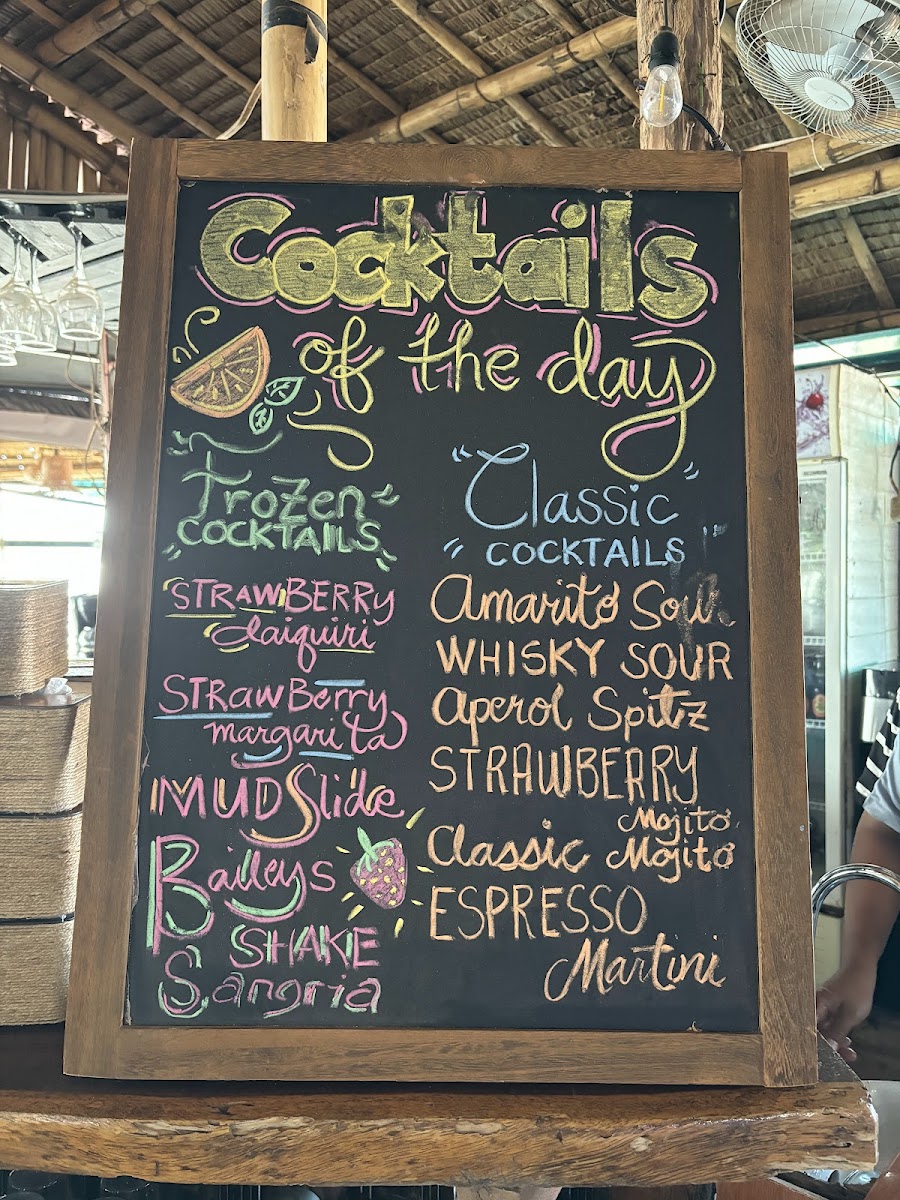 Cocktails
of the day
Frozen
COCKTAILS
STRAWBERRY
daiquiri
STRawBerry
margarita
MUDSlide
Baileys
SHAKE
Sangria
"Classic"
COCKTAILS
Amarito Sour
WHISKY SOUR
Aperol Spitz
STRAWBERRY
Mojito
Classic Mojito
ESPRESSO
Martini